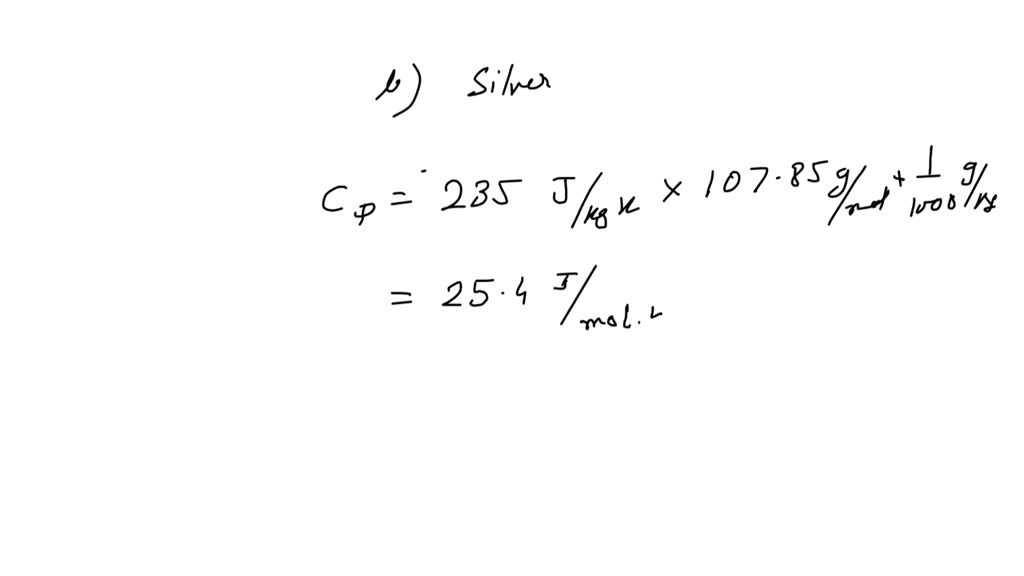 b) Silver
Cp = 235 J/kg K × 107.85 g/mol + 1/1000 g/kg
= 25.4 J/mol.